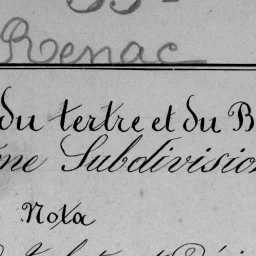 Renac
du tertre et du B
me Subdivision
Nota